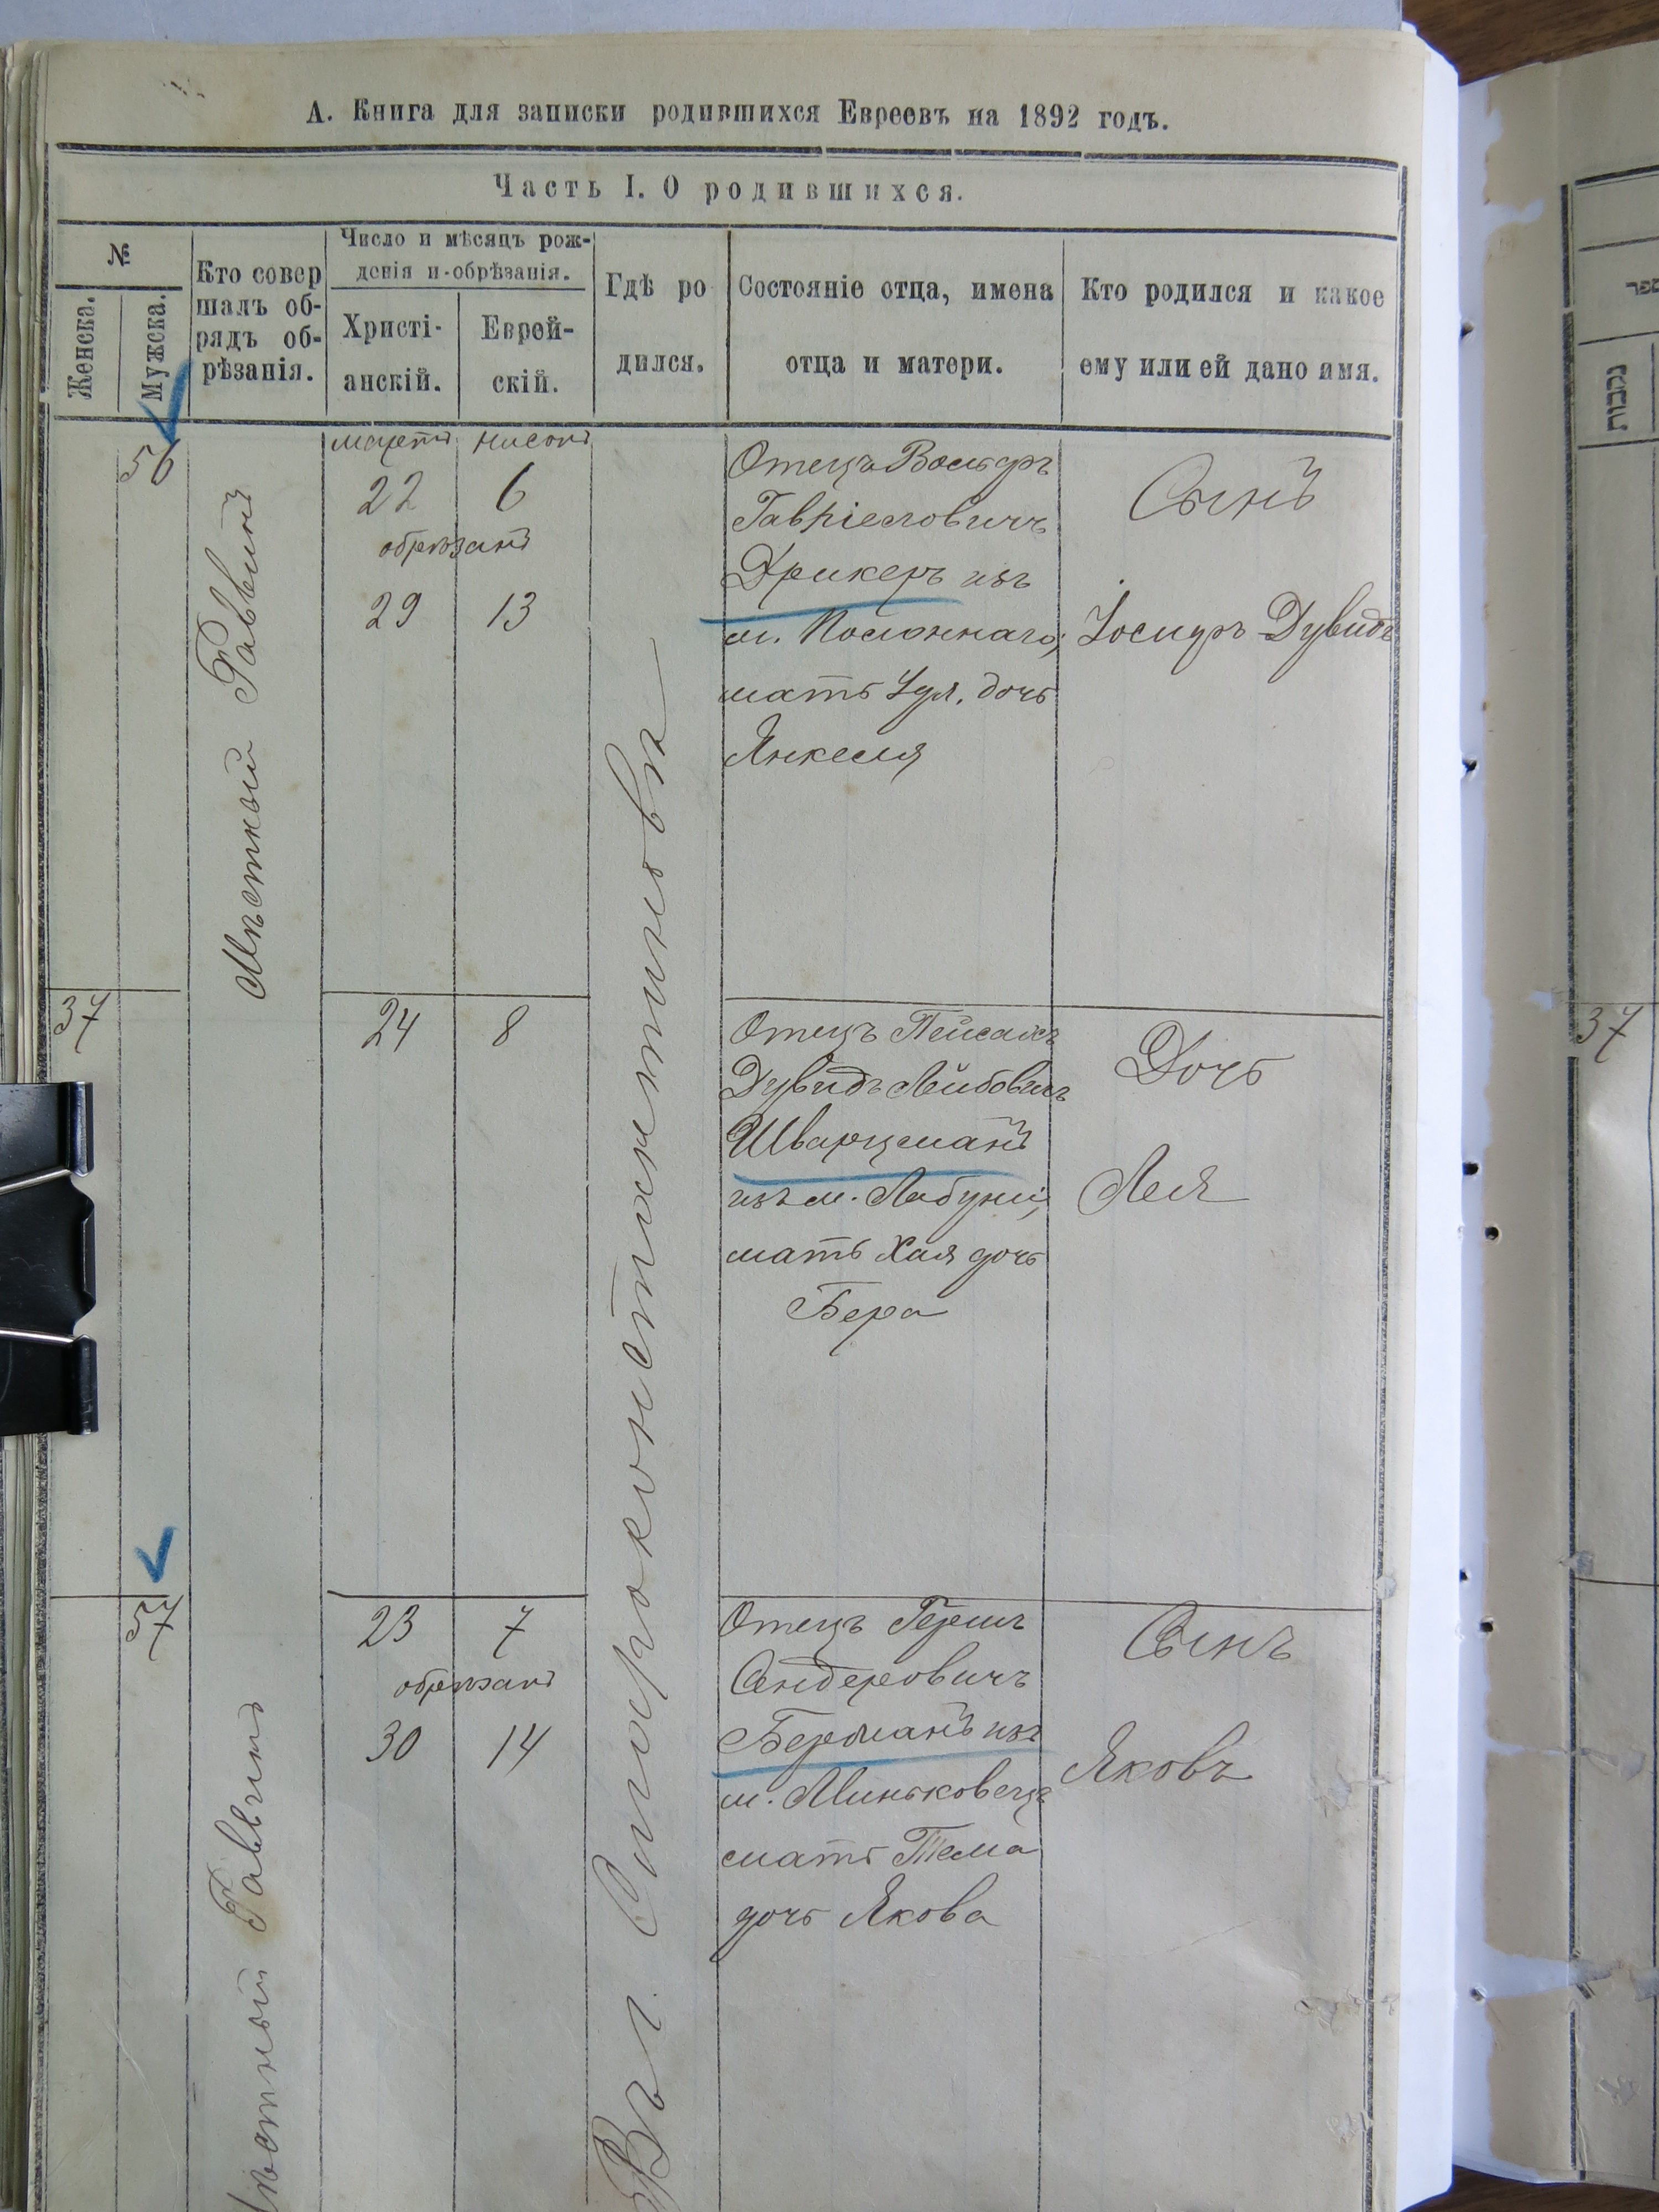 А. Книга для записки родившихся Евреевъ на 1892 годъ.
Часть I. О родившихся.
№
Женска.
Мужска.
Кто совер
шалъ об-
рядъ об-
рѣзанія.
Число и мѣсяцъ рож-
денія и обрѣзанія.
Христі-
анскій.
Еврей-
скій.
Гдѣ ро
дился.
Состояніе отца, имена
отца и матери.
Кто родился и какое
ему или ей дано имя.
56
Мѣстный Раввинъ
мартъ нисонъ
22 6
обрѣзанъ
29 13
Въ г. Староконстантиновѣ
Отецъ Вольфъ
Гавріеловичъ
Дрикеръ изъ
м. Полоннаго,
мать дочь
Янкеля
Сынъ
Іосифъ Дувидъ
37
24 8
Отецъ Пейсахъ
Дувидъ Лейбовичъ
Шварцманъ
изъ м. Лабуни,
мать Хая дочь
Бера
Дочь
Лея
57
Мѣстный Раввинъ
23 7
обрѣзанъ
30 14
Отецъ Гершъ
Сендеровичъ
Берманъ изъ
м. Миньковецъ
мать Тема
дочь Якова
Сынъ
Яковъ
37